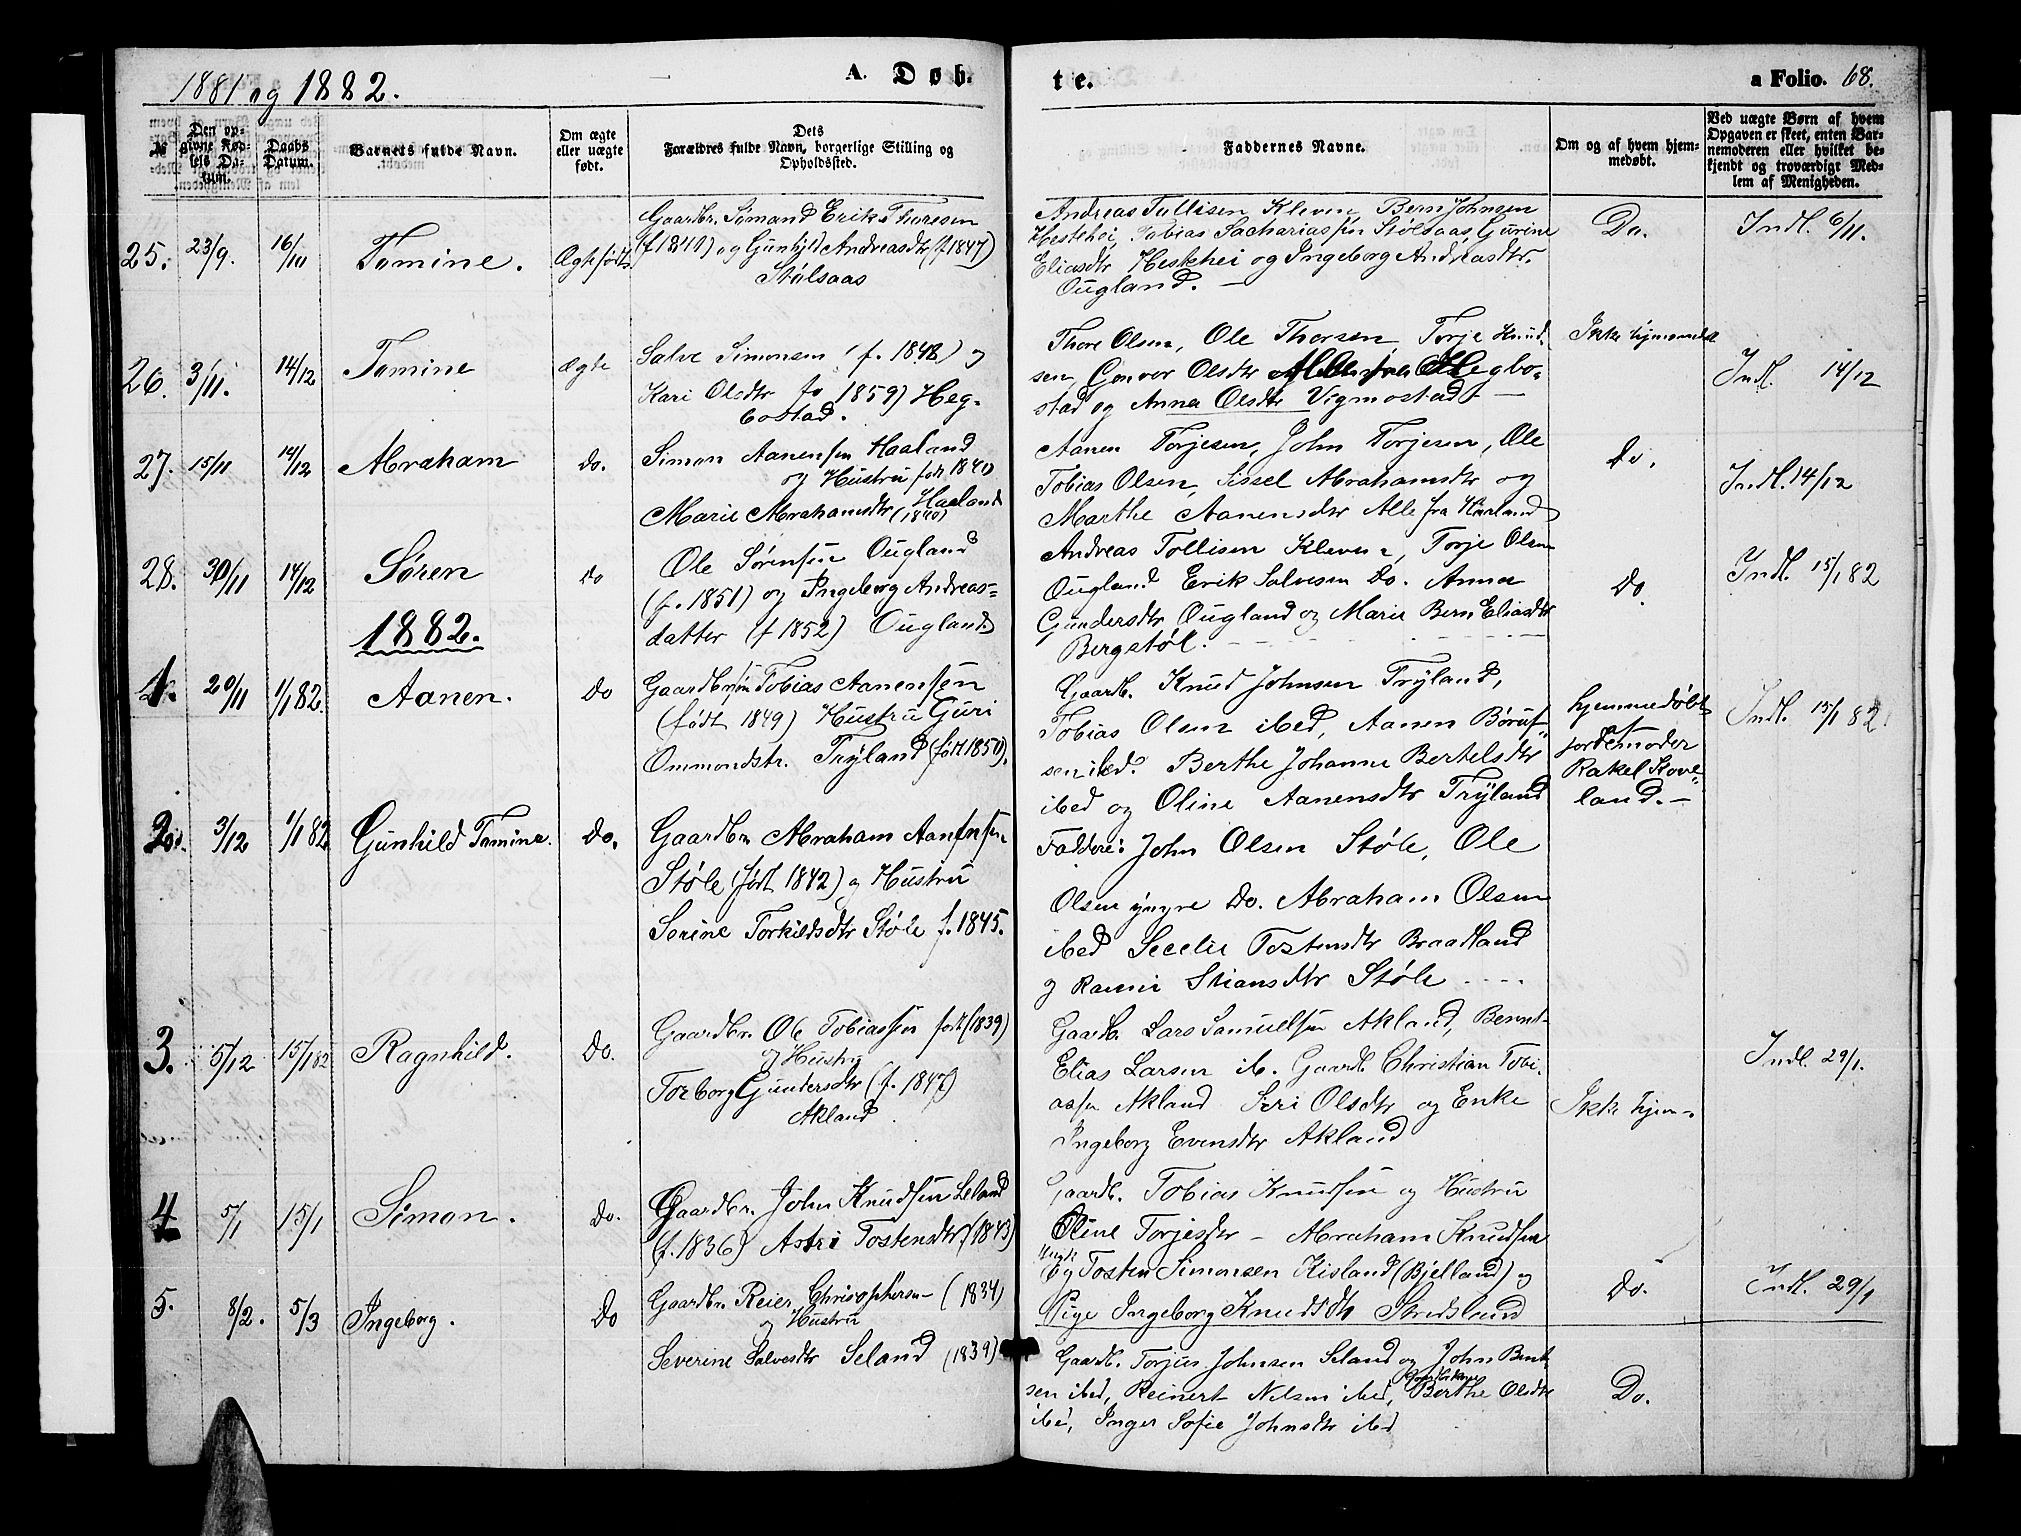 1881 og 1882.
A. Døb-
te.
a Folio. 68.
№
Den op-
givne Fød-
sels Da-
tum.
Daabs
Datum.
Barnets fulde Navn.
Om ægte
eller uægte
født.
Dets
Forældres fulde Navn, borgerlige Stilling og
Opholdssted.
Faddernes Navne.
Om og af hvem hjem-
medøbt.
Ved uægte Børn af hvem
Opgaven er skeet, enten Bar-
nemoderen eller hvilket be-
kjendt og troværdigt Med-
lem af Menigheden.
25. 23/9. 16/10 Tomine. Ægtefødt
Gaardbr. Simand Erik Thoresen
(f. 1840) og Gunhild Andreasdtr (f. 1847)
Stølsaas
Andreas Tollisen Kleven Bern Johnsen
Hestehei, Tobias Sachariassen Stølsaas, Gurine
Eliasdtr Hestehei og Ingeborg Andreasdtr.
Ougland.
Do.
Indl. 6/11.
26. 3/11. 14/12 Tomine ægte
Salve Simonsen (f. 1848) og
Kari Olsdtr fo 1859) Heg-
bostad.
Thore Olsen, Ole Thorsen, Torje Knud-
sen, Gonvor Olsdtr Hegbo-
stad og Anna Olsdtr Vigmostad
Ikke hjemmed
Indl. 14/12
27. 15/11 14/12 Abraham do.
Simon Aanensen Haaland
og Hustru født 1840
Marie Abrahamsdtr Haaland
(1840)
Aanen Torjesen, John Torjesen, Ole
Tobias Olsen, Sissel Abrahamsdtr og
Marthe Aanensdtr Alle fra Haaland
Do.
Indl. 14/12
28. 30/11 14/12 Søren Do
Ole Sørensen Ougland
(f. 1851) og Ingeborg Andreas-
datter (f 1852) Ougland.
Andreas Tollisen Kleven, Torje Olsen
Ougland Erik Salvesen Do. Anna
Gundersdtr Ougland og Marie Bern Eliasdtr
Bergstøl.
Do.
Indl. 15/1 82
1882.
1. 20/11 1/1 82. Aanen. Do
Gaardbr. Tobias Aanensen
(født 1849) Hustru Guri
Ommondstr. Tryland (født 1850).
Gaardb. Knud Johnsen Tryland,
Tobias Olsen ibed, Aanen Børuf-
sen ibed. Berthe Johanne Bertelsdtr
ibed og Oline Aanensdtr Tryland
hjemmedøbt
af
Jordemoder
Rakel Skove-
land.
Indl. 15/1 82.
2. 3/12 1/1 82 Gunhild Tomine. Do.
Gaardbr. Abraham Aanensen
Støle (født 1842) og Hustru
Serine Torkildsdtr Støle f. 1845.
Faddere: John Olsen Støle, Ole
Olsen yngre Do. Abraham Olsen
ibed Secelie Tostensdtr Braadland
g Stiansdtr Støle
3. 5/12 15/1 82 Ragnhild. Do.
Gaardbr. Ole Tobiassen født (1839)
og Hustru
Torborg Gundersdtr (f. 1847)
Akland
Gaardb. Lars Samuelsen Akland, Bernt
Elias Larsen ib. Gaardb Christian Tobi-
assen Akland Siri Olsdtr og Enke
Ingeborg Evensdtr Akland
Ikke hjem.
Indl. 29/1.
4 5/1 15/1 Simon. Do.
Gaardbr. John Knudsen Leland
(f. 1836) Astri Tostensdtr. (1843)
Gaardb. Tobias Knudsen og Hustru
Oline Torjesdtr - Abraham Knudsen
Ungk
og Tosten Simonsen Kisland (Bjelland) og
Pige Ingeborg Knudsdtr
Do.
Indl. 29/1
5. 8/2. 5/3 Ingeborg. Do
Gaardbr. Reier Christophersen (1834)
og Hustru
Severine Salvesdtr Seland (1839)
Gaardb. Torjus Johnsen Seland og John Bent-
sen ibed, Reinert Nilsen ibed, Berthe Olsdtr
ibd, Inger Sofie Johnsdtr ibd
Do.